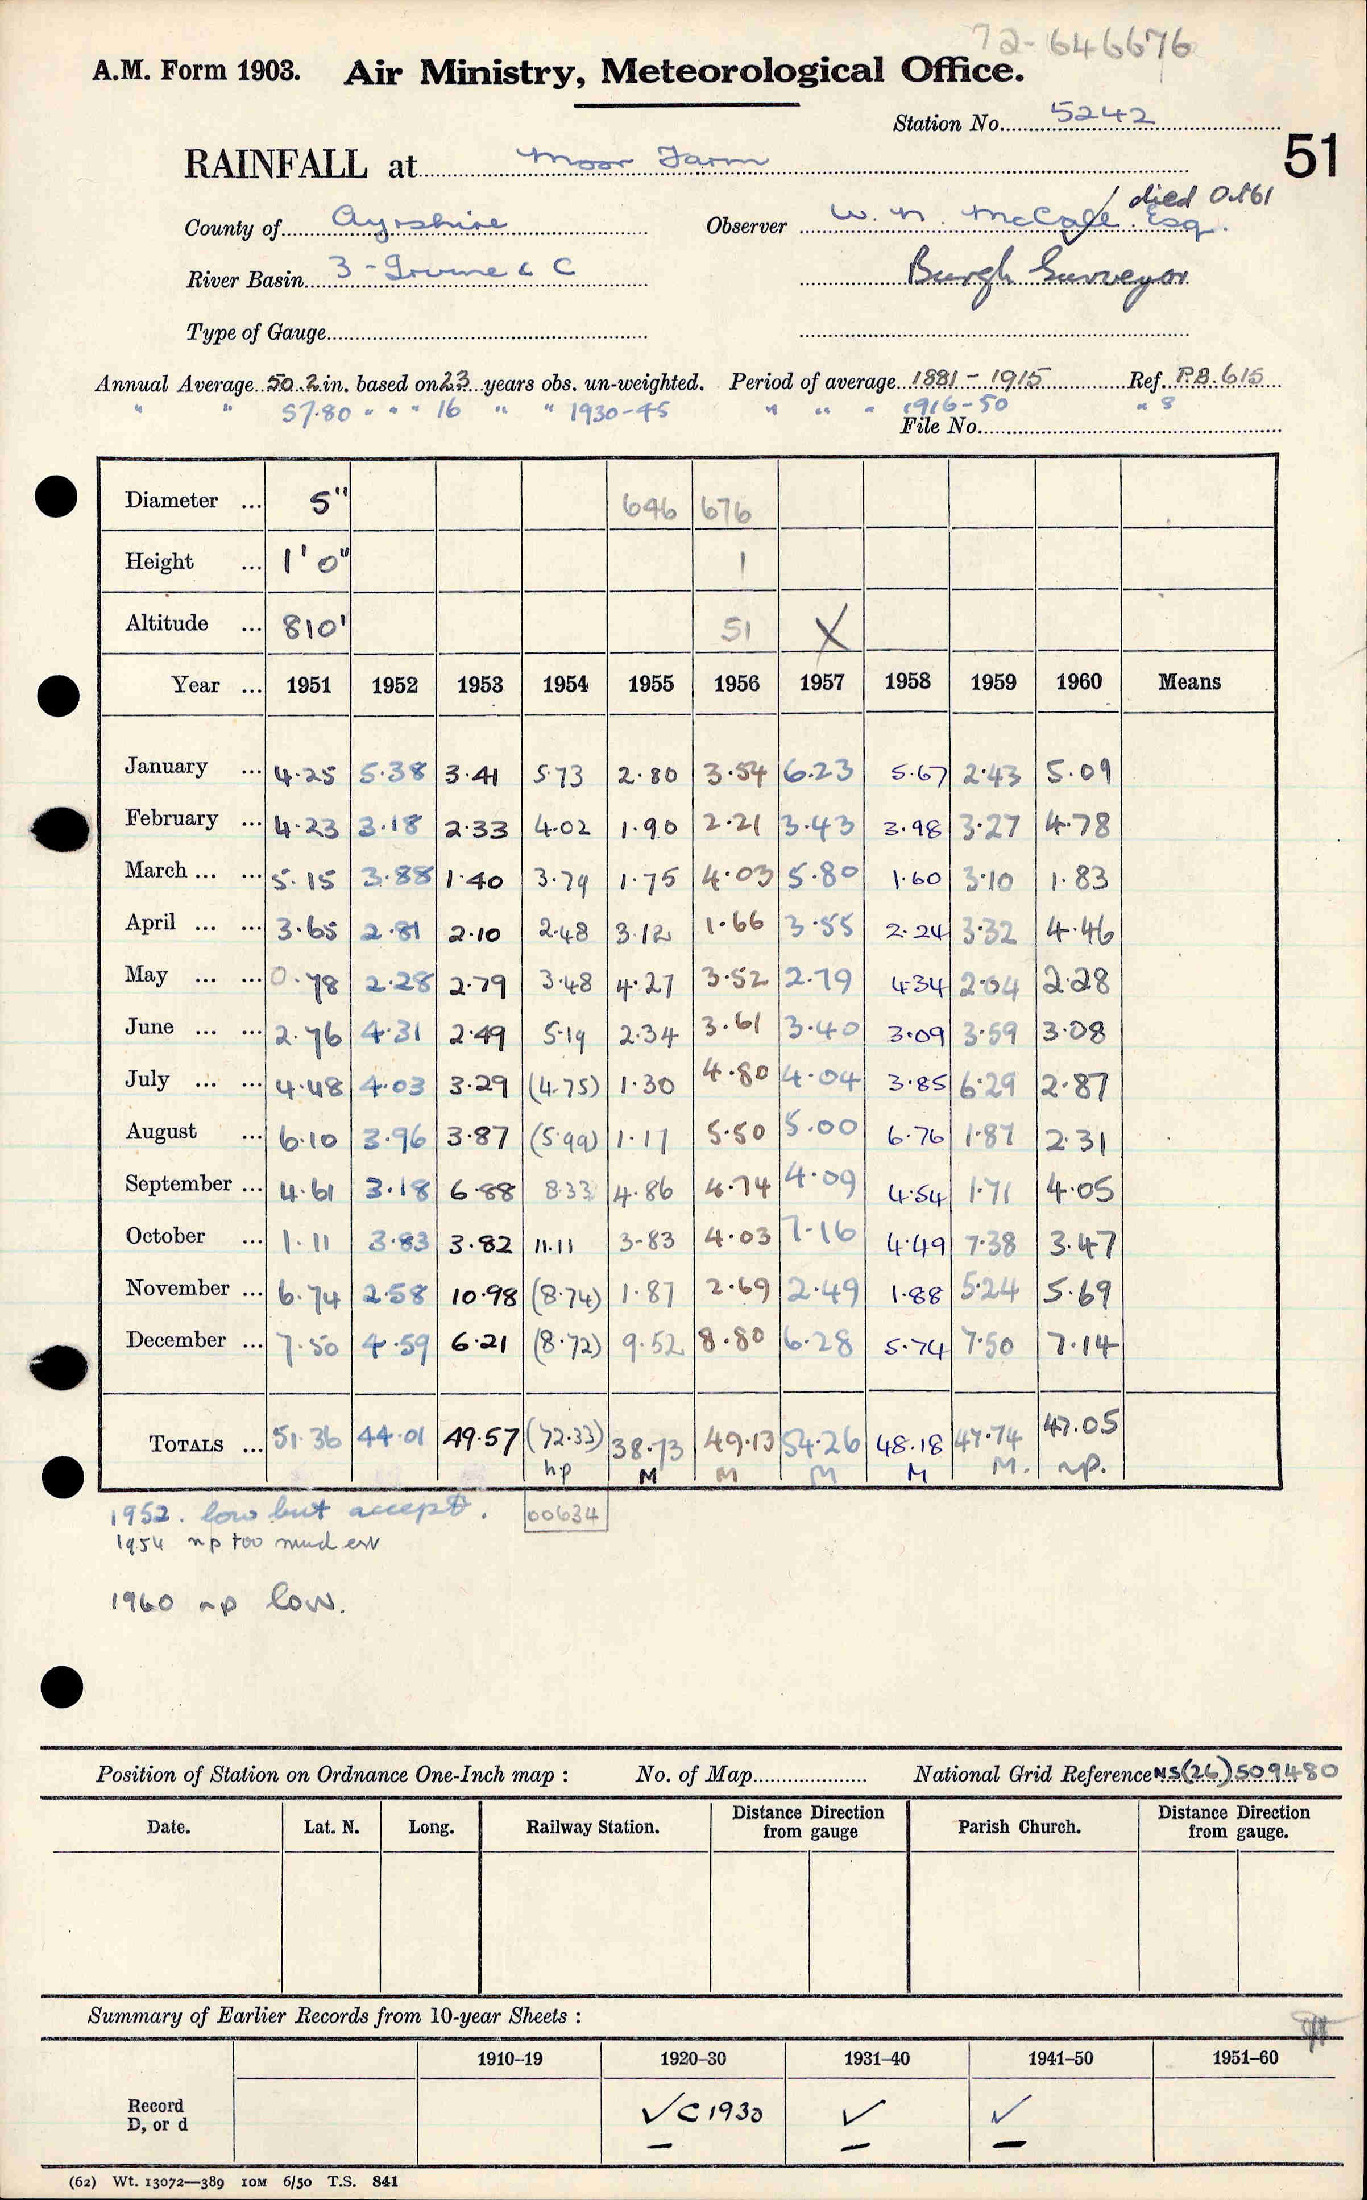 72-646676
A.M. Form 1903. Air Ministry, Meteorological Office.
Station No. 5242
51
RAINFALL at Moor Farm
died Oct 61
County of Ayrshire Observer W. N. McCall Esq.
River Basin 3 - Irvine & C Burgh Surveyor
Type of Gauge
Annual Average 50.2 in. based on 23 years obs. un-weighted. Period of average 1881 - 1915 Ref. P.B. 615
" " 57.80 " " " 16 " " 1930-45 " " " 1916-50 " 8
File No.
Diameter ... 5" 646 676
Height ... 1' 0" 1
Altitude ... 810' 51 X
Year ... 1951 1952 1953 1954 1955 1956 1957 1958 1959 1960 Means
January ... 4.25 5.38 3.41 5.73 2.80 3.54 6.23 5.67 2.43 5.09
February ... 4.23 3.18 2.33 4.02 1.90 2.21 3.43 3.98 3.27 4.78
March ... ... 5.15 3.88 1.40 3.79 1.75 4.03 5.80 1.60 3.10 1.83
April ... ... 3.65 2.81 2.10 2.48 3.12 1.66 3.55 2.24 3.32 4.46
May ... ... 0.78 2.28 2.79 3.48 4.27 3.52 2.79 4.34 2.04 2.28
June ... ... 2.76 4.31 2.49 5.19 2.34 3.61 3.40 3.09 3.59 3.08
July ... ... 4.48 4.03 3.29 (4.75) 1.30 4.80 4.04 3.85 6.29 2.87
August ... 6.10 3.96 3.87 (5.99) 1.17 5.50 5.00 6.76 1.87 2.31
September ... 4.61 3.18 6.88 8.33 4.86 4.74 4.09 4.54 1.71 4.05
October ... 1.11 3.83 3.82 11.11 3.83 4.03 7.16 4.49 7.38 3.47
November ... 6.74 2.58 10.98 (8.74) 1.87 2.69 2.49 1.88 5.24 5.69
December ... 7.50 4.59 6.21 (8.72) 9.52 8.80 6.28 5.74 7.50 7.14
TOTALS ... 51.36 44.01 49.57 (72.33) 38.73 49.13 54.26 48.18 47.74 47.05
np M M M M M. np.
1952. low but accept. 00634
1954 np too much est
1960 np low.
Position of Station on Ordnance One-Inch map : No. of Map National Grid Reference NS(26)509480
Date. Lat. N. Long. Railway Station. Distance from gauge Direction Parish Church. Distance from gauge. Direction
Summary of Earlier Records from 10-year Sheets :
1910–19 1920–30 1931–40 1941–50 1951–60
Record D, or d ✓ C 1930 ✓ ✓
(62) Wt. 13072—389 10M 6/50 T.S. 841